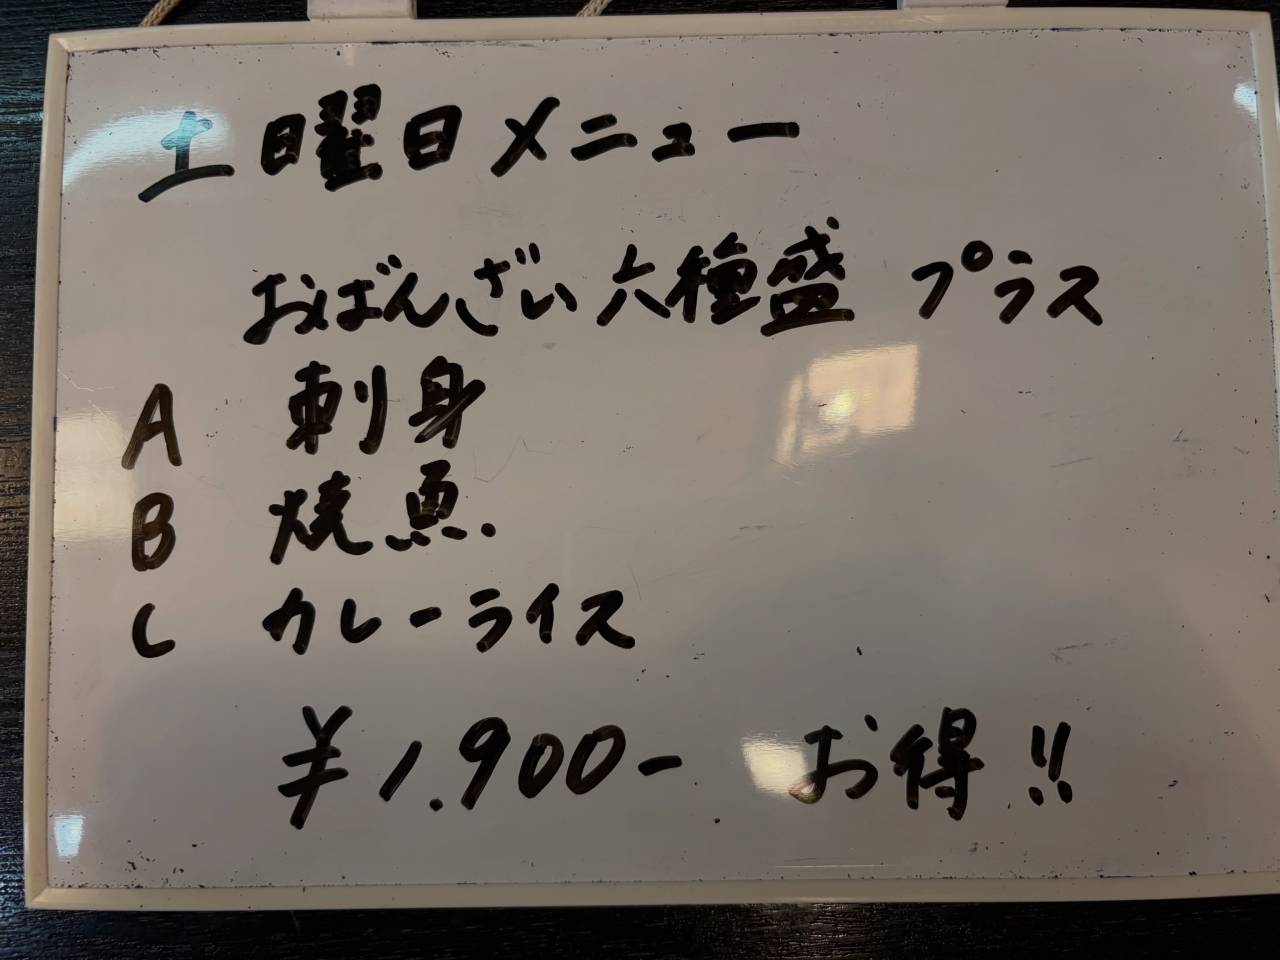 土曜日メニュー
おばんざい六種盛 プラス
A 刺身
B 焼魚.
C カレーライス
¥1.900- お得!!